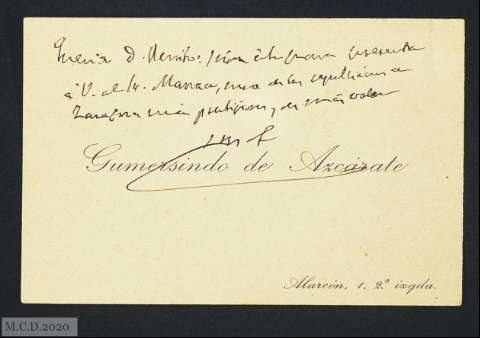 Querido D. Benito: sirva ésta para presentar
a V. al Sr. Marraco, uno de los republicanos de
Zaragoza más prestigiosos, y de más valer
Gumersindo de Azcárate
Alarcón, 1, 2.º izqda.
M.C.D.2020